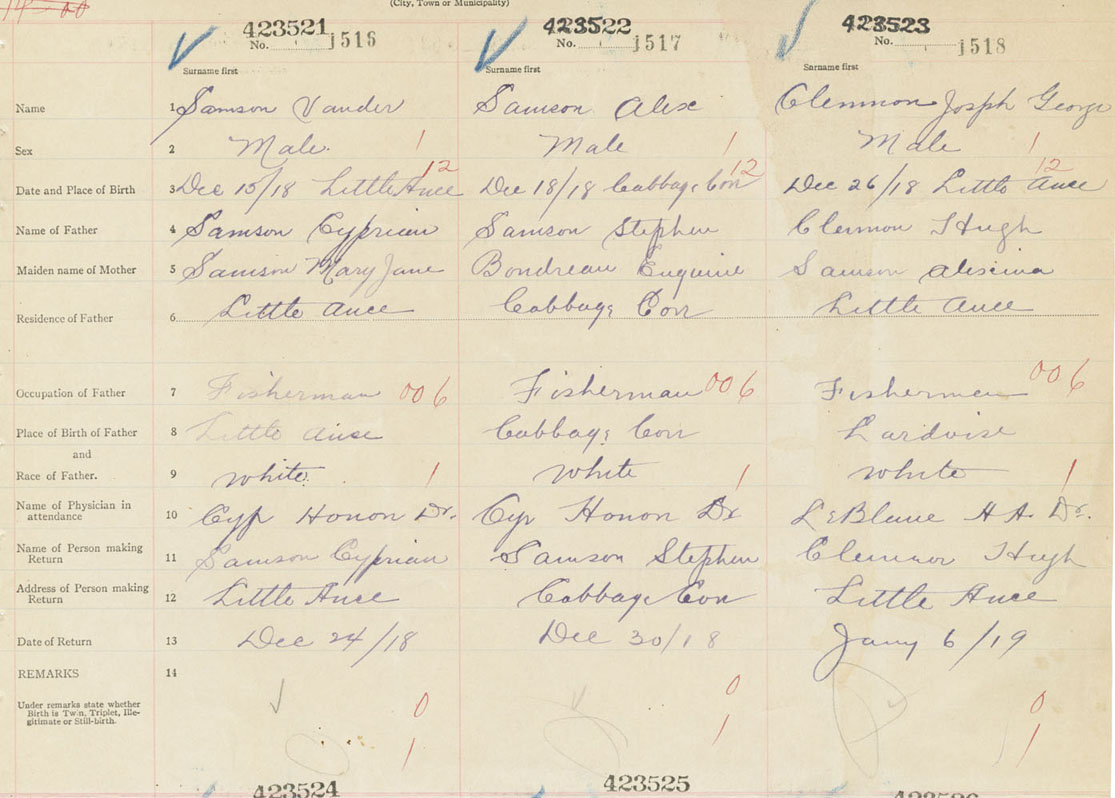 14-00
(City, Town or Municipality)
423521 423522 423523
No. j516 No. j517 No. j518
Surname first Surname first Surname first
Name 1 Samson Vander Samson Alex Clemmon Josph George
Sex 2 Male. 1 Male 1 Male 1
12 12 12
Date and Place of Birth 3 Dec 15/18 Little Ance Dec 18/18 Cabbage Cov Dec 26/18 Little Ance
Name of Father 4 Samson Cyprian Samson Stephen Clemmon Hugh
Maiden name of Mother 5 Samson Mary Jane Bondreau Euguine Samson Alexina
Residence of Father 6 Little Ance Cabbage Cov Little Ance
Occupation of Father 7 Fisherman 006 Fisherman 006 Fisherman 006
Place of Birth of Father 8 Little Ance Cabbage Cov Lardoise
and
Race of Father. 9 White. 1 White 1 White 1
Name of Physician in attendance 10 Cyp Honon Dr. Cyr Honon Dr LeBlanc A A. Dr.
Name of Person making Return 11 Samson Cyprian Samson Stephen Clemmon Hugh
Address of Person making Return 12 Little Ance Cabbage Cov Little Ance
Date of Return 13 Dec 24/18 Dec 30/18 Jany 6/19
REMARKS 14
Under remarks state whether Birth is Twin, Triplet, Ille-
gitimate or Still-birth.
0 0 0
1 1 1
423524 423525 423526